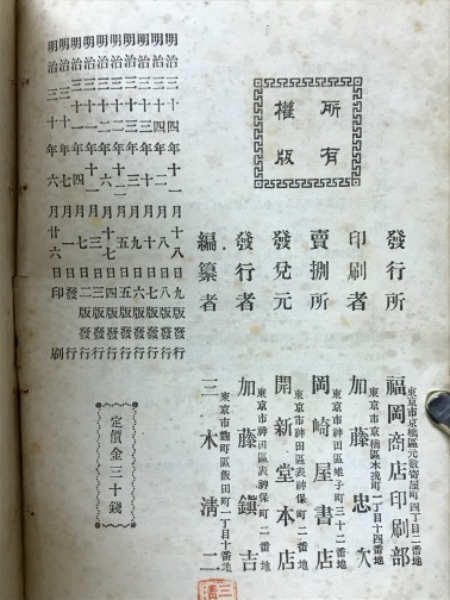 所有
權版
發行所
東京市京橋區元數寄屋町四丁目二番地
福岡商店印刷部
印刷者
東京市京橋區木挽町一丁目十四番地
加藤忠次
賣捌所
東京市神田區雉子町三十二番地
岡崎屋書店
發兌元
東京市神田區表神保町二番地
開新堂本店
發行者
東京市神田區表神保町二番地
加藤鎭吉
編纂者
東京市麹町區飯田町二丁目十番地
三木清二
明治三十四年十一月十八日九版發行
明治三十四年 月八日八版發行
明治三十三年十二月十日七版發行
明治三十三年 月九日六版發行
明治三十二年十二月五日五版發行
明治三十二年 月十七日四版發行
明治三十一年十一月三日三版發行
明治三十一年四月七日二版發行
明治三十年七月一日發行
明治三十年六月廿六日印刷
定價金三十錢